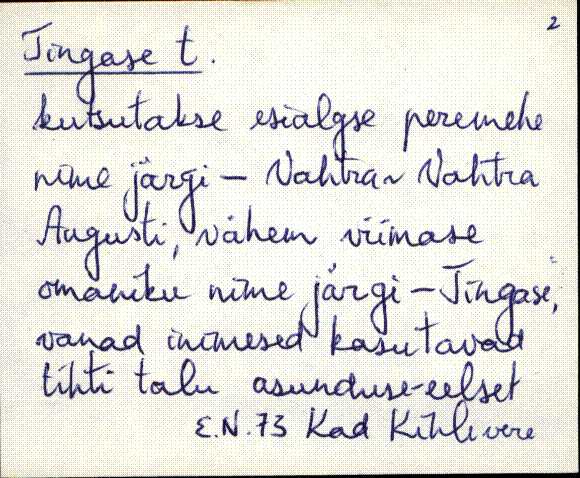 2
Tingase t.
kutsutakse esialgse peremehe
nime järgi – Vahtra ~ Vahtra
Augusti, vähem viimase
omaniku nime järgi – Tingase,
vanad inimesed kasutavad
tihti talu asunduse-eelset
E.N. 73 Kad Kihlevere